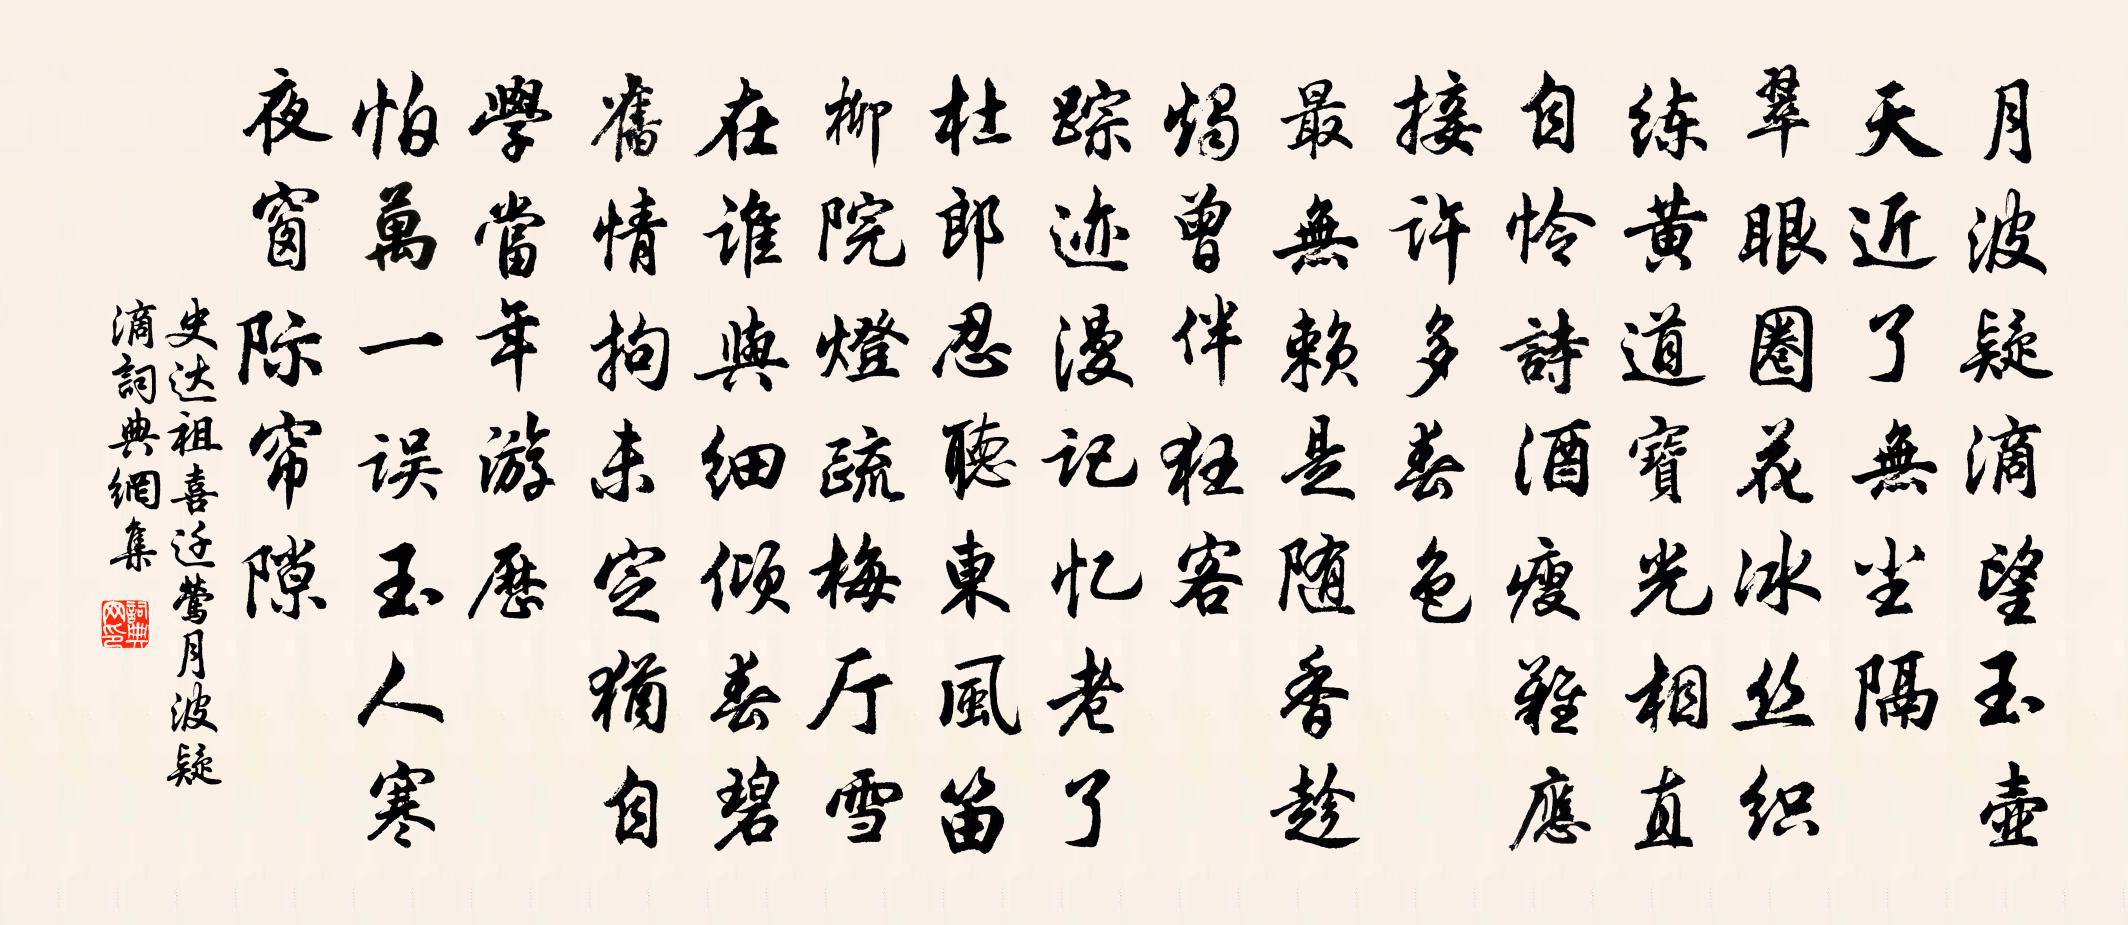 月波疑滴望玉壶
天近了無尘隔
翠眼圈花冰丝织
练黄道寶光相直
自怜詩酒瘦難應
接许多春色
最無赖是随香趁
烛曾伴狂客
踪迹漫记忆老了
杜郎忍聴東風笛
柳院燈疏梅厅雪
在谁與细倾春碧
舊情拘未定猶自
學當年游歷
怕萬一误玉人寒
夜窗际帘隙
史达祖喜迁莺月波疑
滴詞典網集
詞典
网印